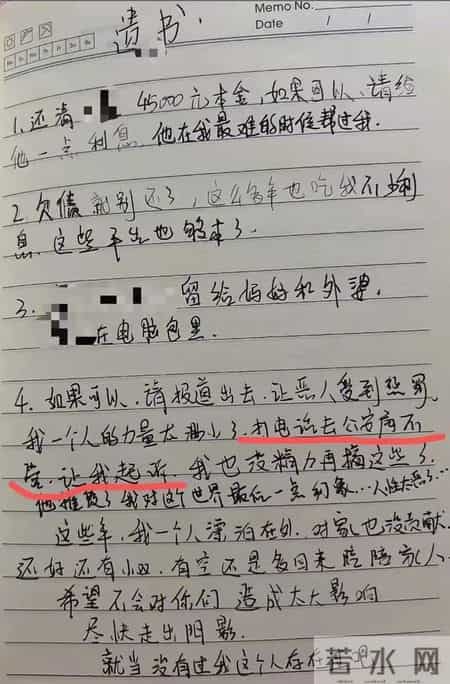 Memo No.
Date / /
遗书.
1. 还清 45000元本金,如果可以、请给
他一点利息,他在我最难的时候帮过我.
2. 欠债就别还了,这么多年也吃我不少利
息.这些平台也够本了.
3. 留给妈妈和外婆.
在电脑包里.
4. 如果可以、请报道出去、让恶人受到惩罚.
我一个人的力量太渺小了.打电话去公安局不
管、让我起诉.我也没精力再搞这些了.
他摧毁了我对这个世界最后一点幻象...人性太恶了...
这些年,我一个人漂泊在外.对家也没贡献.
还好还有小 .有空还是多回来陪陪家人.
希望不会对你们造成太大影响
尽快走出阴影.
就当没有过我这个人存在
若水网